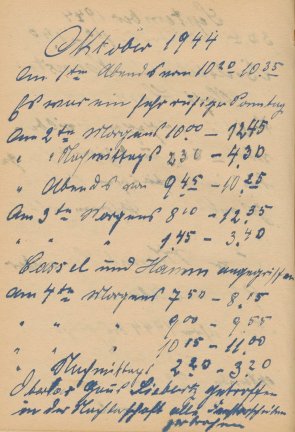 Oktober 1944
Am 1ten Abends von 10 20 10.35
Es war ein sehr ruhiger Sonntag
Am 2ten Morgens 10 00 – 12.45
" " Nachmittags 2 30 – 4 30
" Abends von 9 45 – 10.25
Am 3ten Morgens 8 10 – 12.35
" " " 1 45 – 3.40
Cassel und Hamm angegriffen
Am 4ten Morgens 7 50 – 8.15
" " 9 00 – 9.55
" " 10 15 – 11.00
" Nachmittags 2 20 – 3.20
Haus getroffen
in der Nachbarschaft alle Fensterscheiben